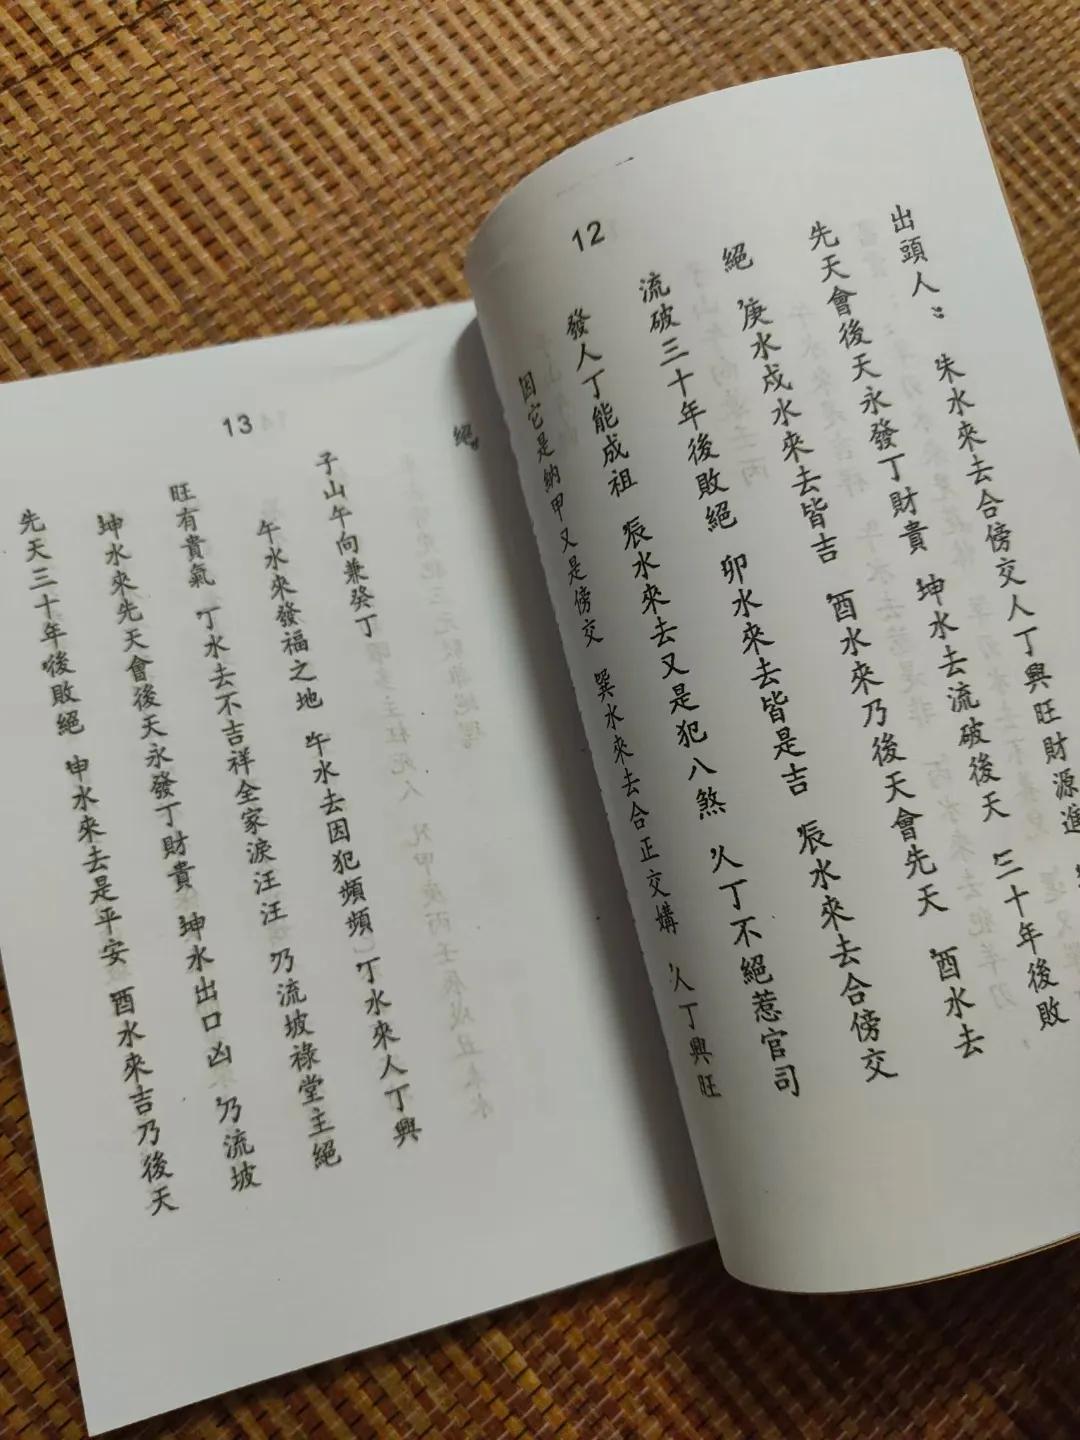 12
出頭人：　朱水來去合傍交人丁興旺財源進
先天會後天永發丁財貴　坤水去流破後天　三十年後敗
絕　庚水戍水來去皆吉　酉水來乃後天會先天　酉水去
流破三十年後敗絕　卯水來去皆是吉　辰水來去合傍交
發人丁能成祖　辰水來去又是犯八煞　人丁不絕惹官司
因它是納甲又是傍交　巽水來去合正交媾　人丁興旺
13
絕。
子山午向兼癸丁
午水來發福之地　午水去因犯頻頻　丁水來人丁興
旺有貴氣　丁水去不吉祥全家淚汪汪　乃流坡祿堂主絕
坤水來先天會後天永發丁財貴　坤水出口凶　乃流坡
先天三十年後敗絕　申水來去是平安　酉水來吉乃後天